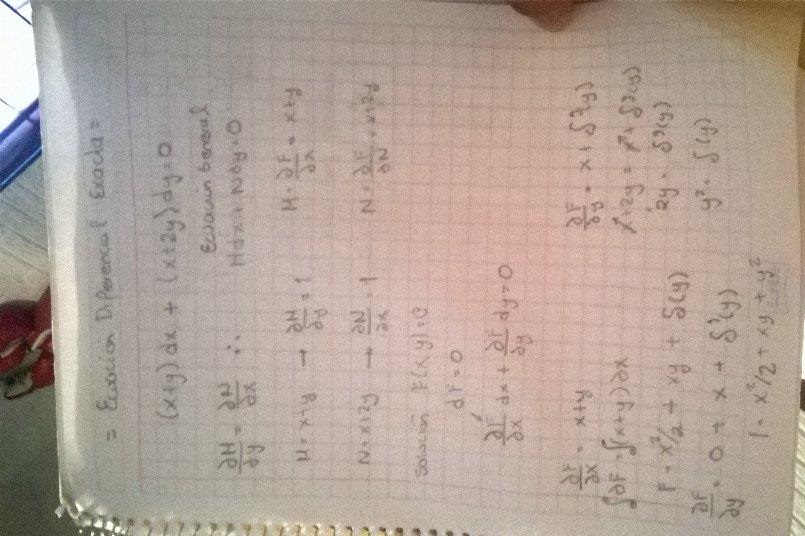 = Ecuacion Diferencial Exacta =
(x+y)dx + (x+2y)dy=0
∂M/∂y = ∂N/∂x ∴ Ecuacion General
Mdx + Ndy=0
M=x+y → ∂M/∂y = 1 M=∂F/∂x = x+y
N=x+2y → ∂N/∂x = 1 N=∂F/∂N = x+2y
Solucion F(x,y)=C
dF=0
∂F/∂x dx + ∂F/∂y dy=0
∂F/∂x = x+y
∫∂F=∫(x+y)∂x
F = x²/2 + xy + δ(y)
∂F/∂y = 0 + x + δ'(y)
∂F/∂y = x + δ'(y)
x+2y = x + δ'(y)
2y = δ'(y)
y² = δ(y)
x²/2 + xy + y²